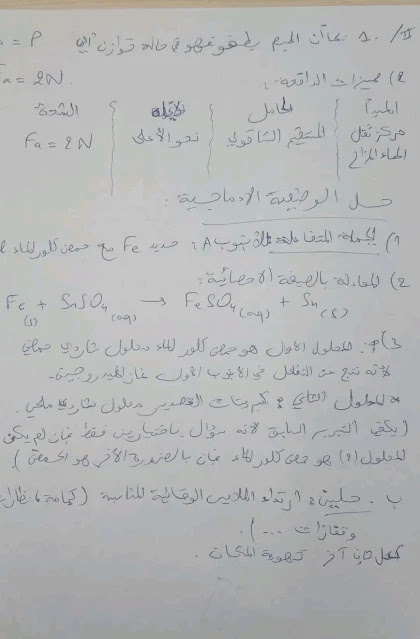 II/ 1. بما أن الجسم يطفو فهو في حالة توازن أي Fa = P
Fa = 2N.
2) مميزات الدافعة:
المبدأ | الحامل | الإتجاه | الشدة
مركز ثقل | المستقيم الشاقولي | نحو الأعلى | Fa = 2N
الماء المزاح
حل الوضعية الإدماجية:
1) الجملة المتفاعلة للأنبوب A: حديد Fe مع حمض كلور الماء
2) المعادلة بالصيغة الإحصائية:
Fe(s) + SnSO4(aq) → FeSO4(aq) + Sn(s)
3) أ. المحلول الأول هو حمض كلور الماء محلول شاردي حمضي
لأنه نتج عن التفاعل في الأنبوب الأول غاز الهيدروجين.
* المحلول الثاني: كبريتات القصدير محلول شاردي ملحي.
(يكفي التبرير السابق لأنه سؤال باختيارين فقط فإن لم يكن
المحلول (2) هو حمض كلور الماء فإن بالضرورة الآخر هو الحمض).
ب. حلين: ارتداء الملابس الوقائية المناسبة (كمامة، نظارات
وقفازات ...).
كحل ثان آخر تهوية المكان.